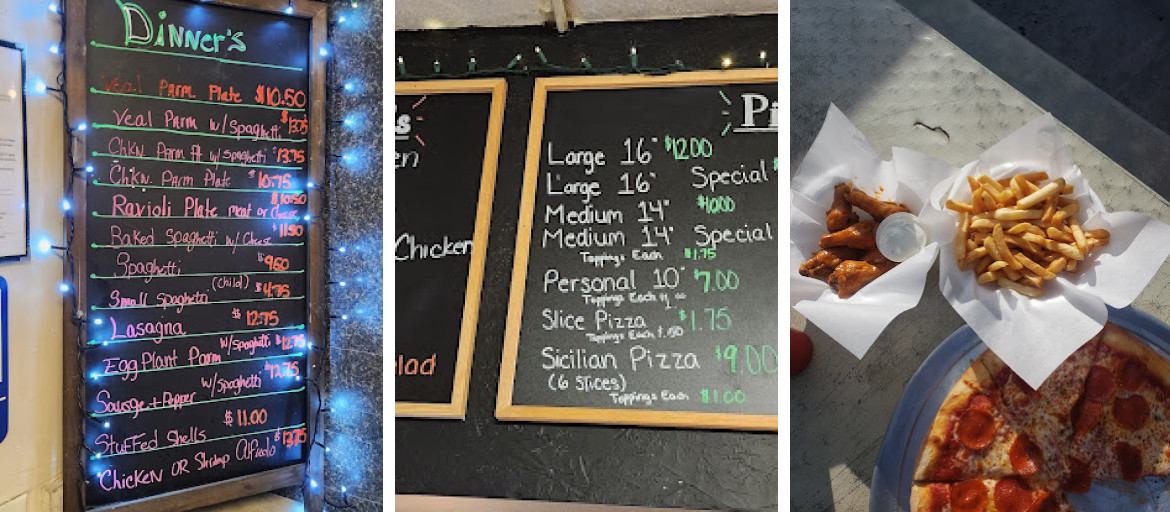 Dinner's
Veal Parm Plate $10.50
Veal Parm w/Spaghetti $13.75
Chkn Parm w/ Spaghetti $13.75
Chkn Parm Plate $10.75
Ravioli Plate meat or Cheese $10.50
Baked Spaghetti w/ Cheese $11.50
Spaghetti $9.50
Small Spaghetti (Child) $4.75
Lasagna $12.75
Egg Plant Parm w/Spaghetti $12.75
Sausge + Pepper w/Spaghetti $12.75
Stuffed Shells $11.00
Chicken OR Shrimp Alfredo $13.75
s
en
Chicken
lad
Pi
Large 16" $12.00
Large 16" Special $
Medium 14" $10.00
Medium 14" Special
Toppings Each $1.75
Personal 10" $7.00
Toppings Each $1.00
Slice Pizza $1.75
Toppings Each $.50
Sicilian Pizza $9.00
(6 Slices)
Toppings Each $1.00